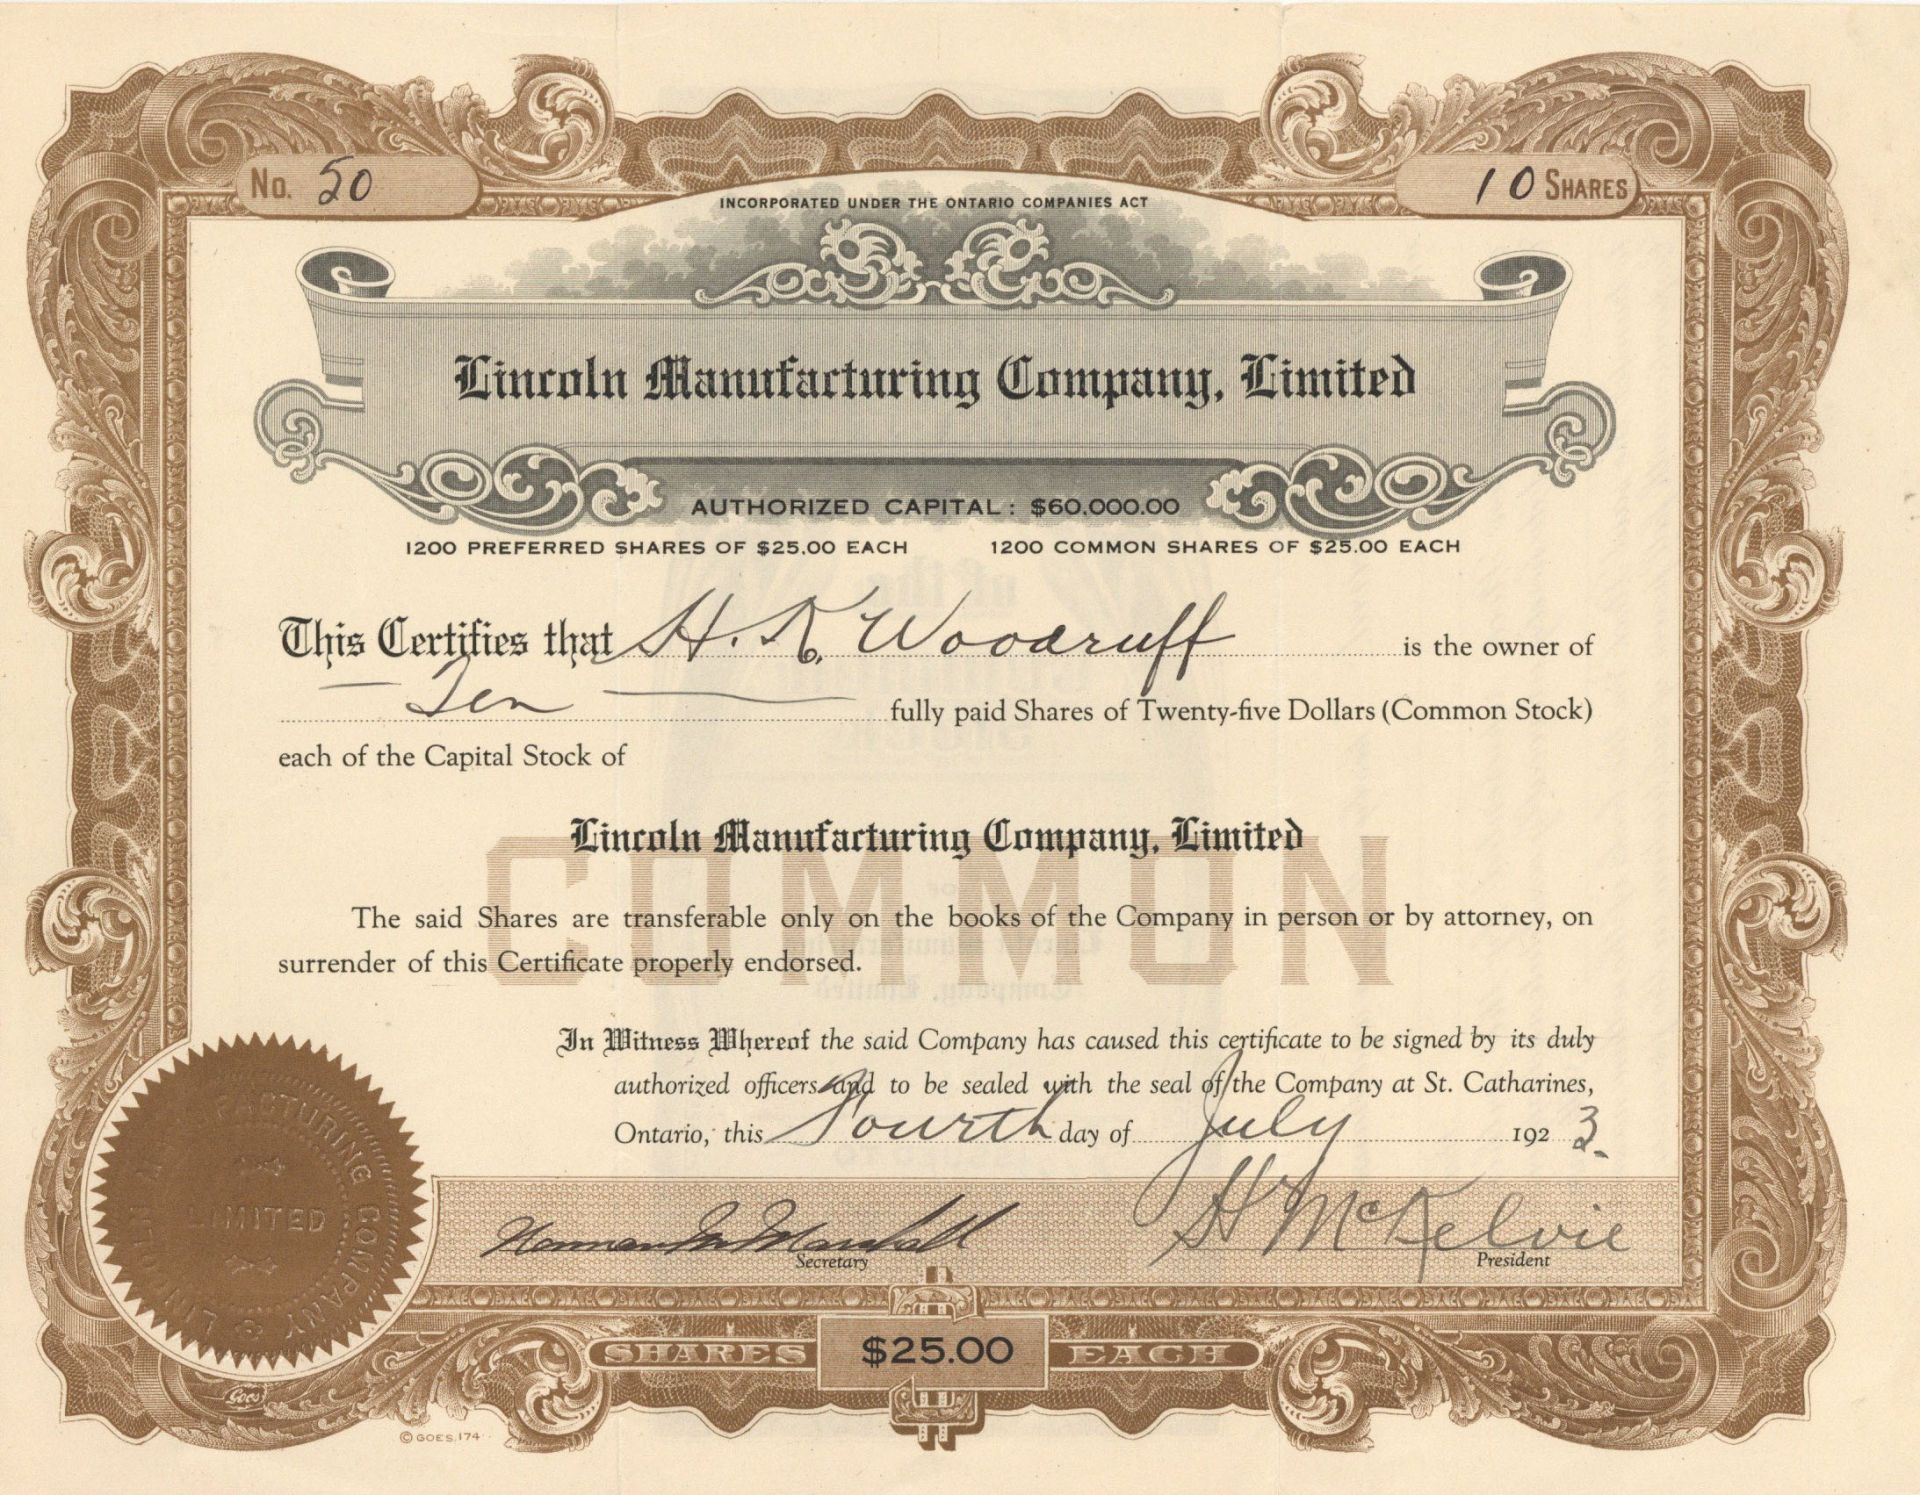 INCORPORATED UNDER THE ONTARIO COMPANIES ACT
No. 50
10 SHARES
Lincoln Manufacturing Company, Limited
AUTHORIZED CAPITAL: $60,000.00
1200 PREFERRED SHARES OF $25.00 EACH 1200 COMMON SHARES OF $25.00 EACH
This Certifies that H. K. Woodruff is the owner of
— Ten — fully paid Shares of Twenty-five Dollars (Common Stock)
each of the Capital Stock of
Lincoln Manufacturing Company, Limited
COMMON
The said Shares are transferable only on the books of the Company in person or by attorney, on
surrender of this Certificate properly endorsed.
In Witness Whereof the said Company has caused this certificate to be signed by its duly
authorized officers and to be sealed with the seal of the Company at St. Catharines,
Ontario, this Fourth day of July 1923.
LINCOLN MANUFACTURING COMPANY
LIMITED
Norman M. Marshall
Secretary
H McKelvie
President
SHARES $25.00 EACH
Goes
© GOES. 174